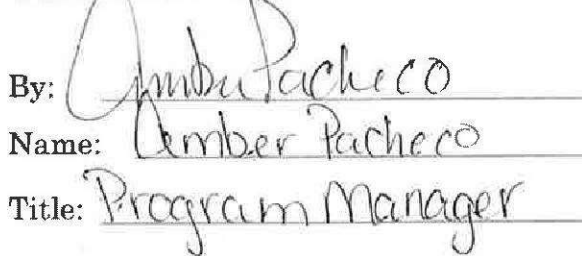 By: Amber Pacheco
Name: Amber Pacheco
Title: Program Manager